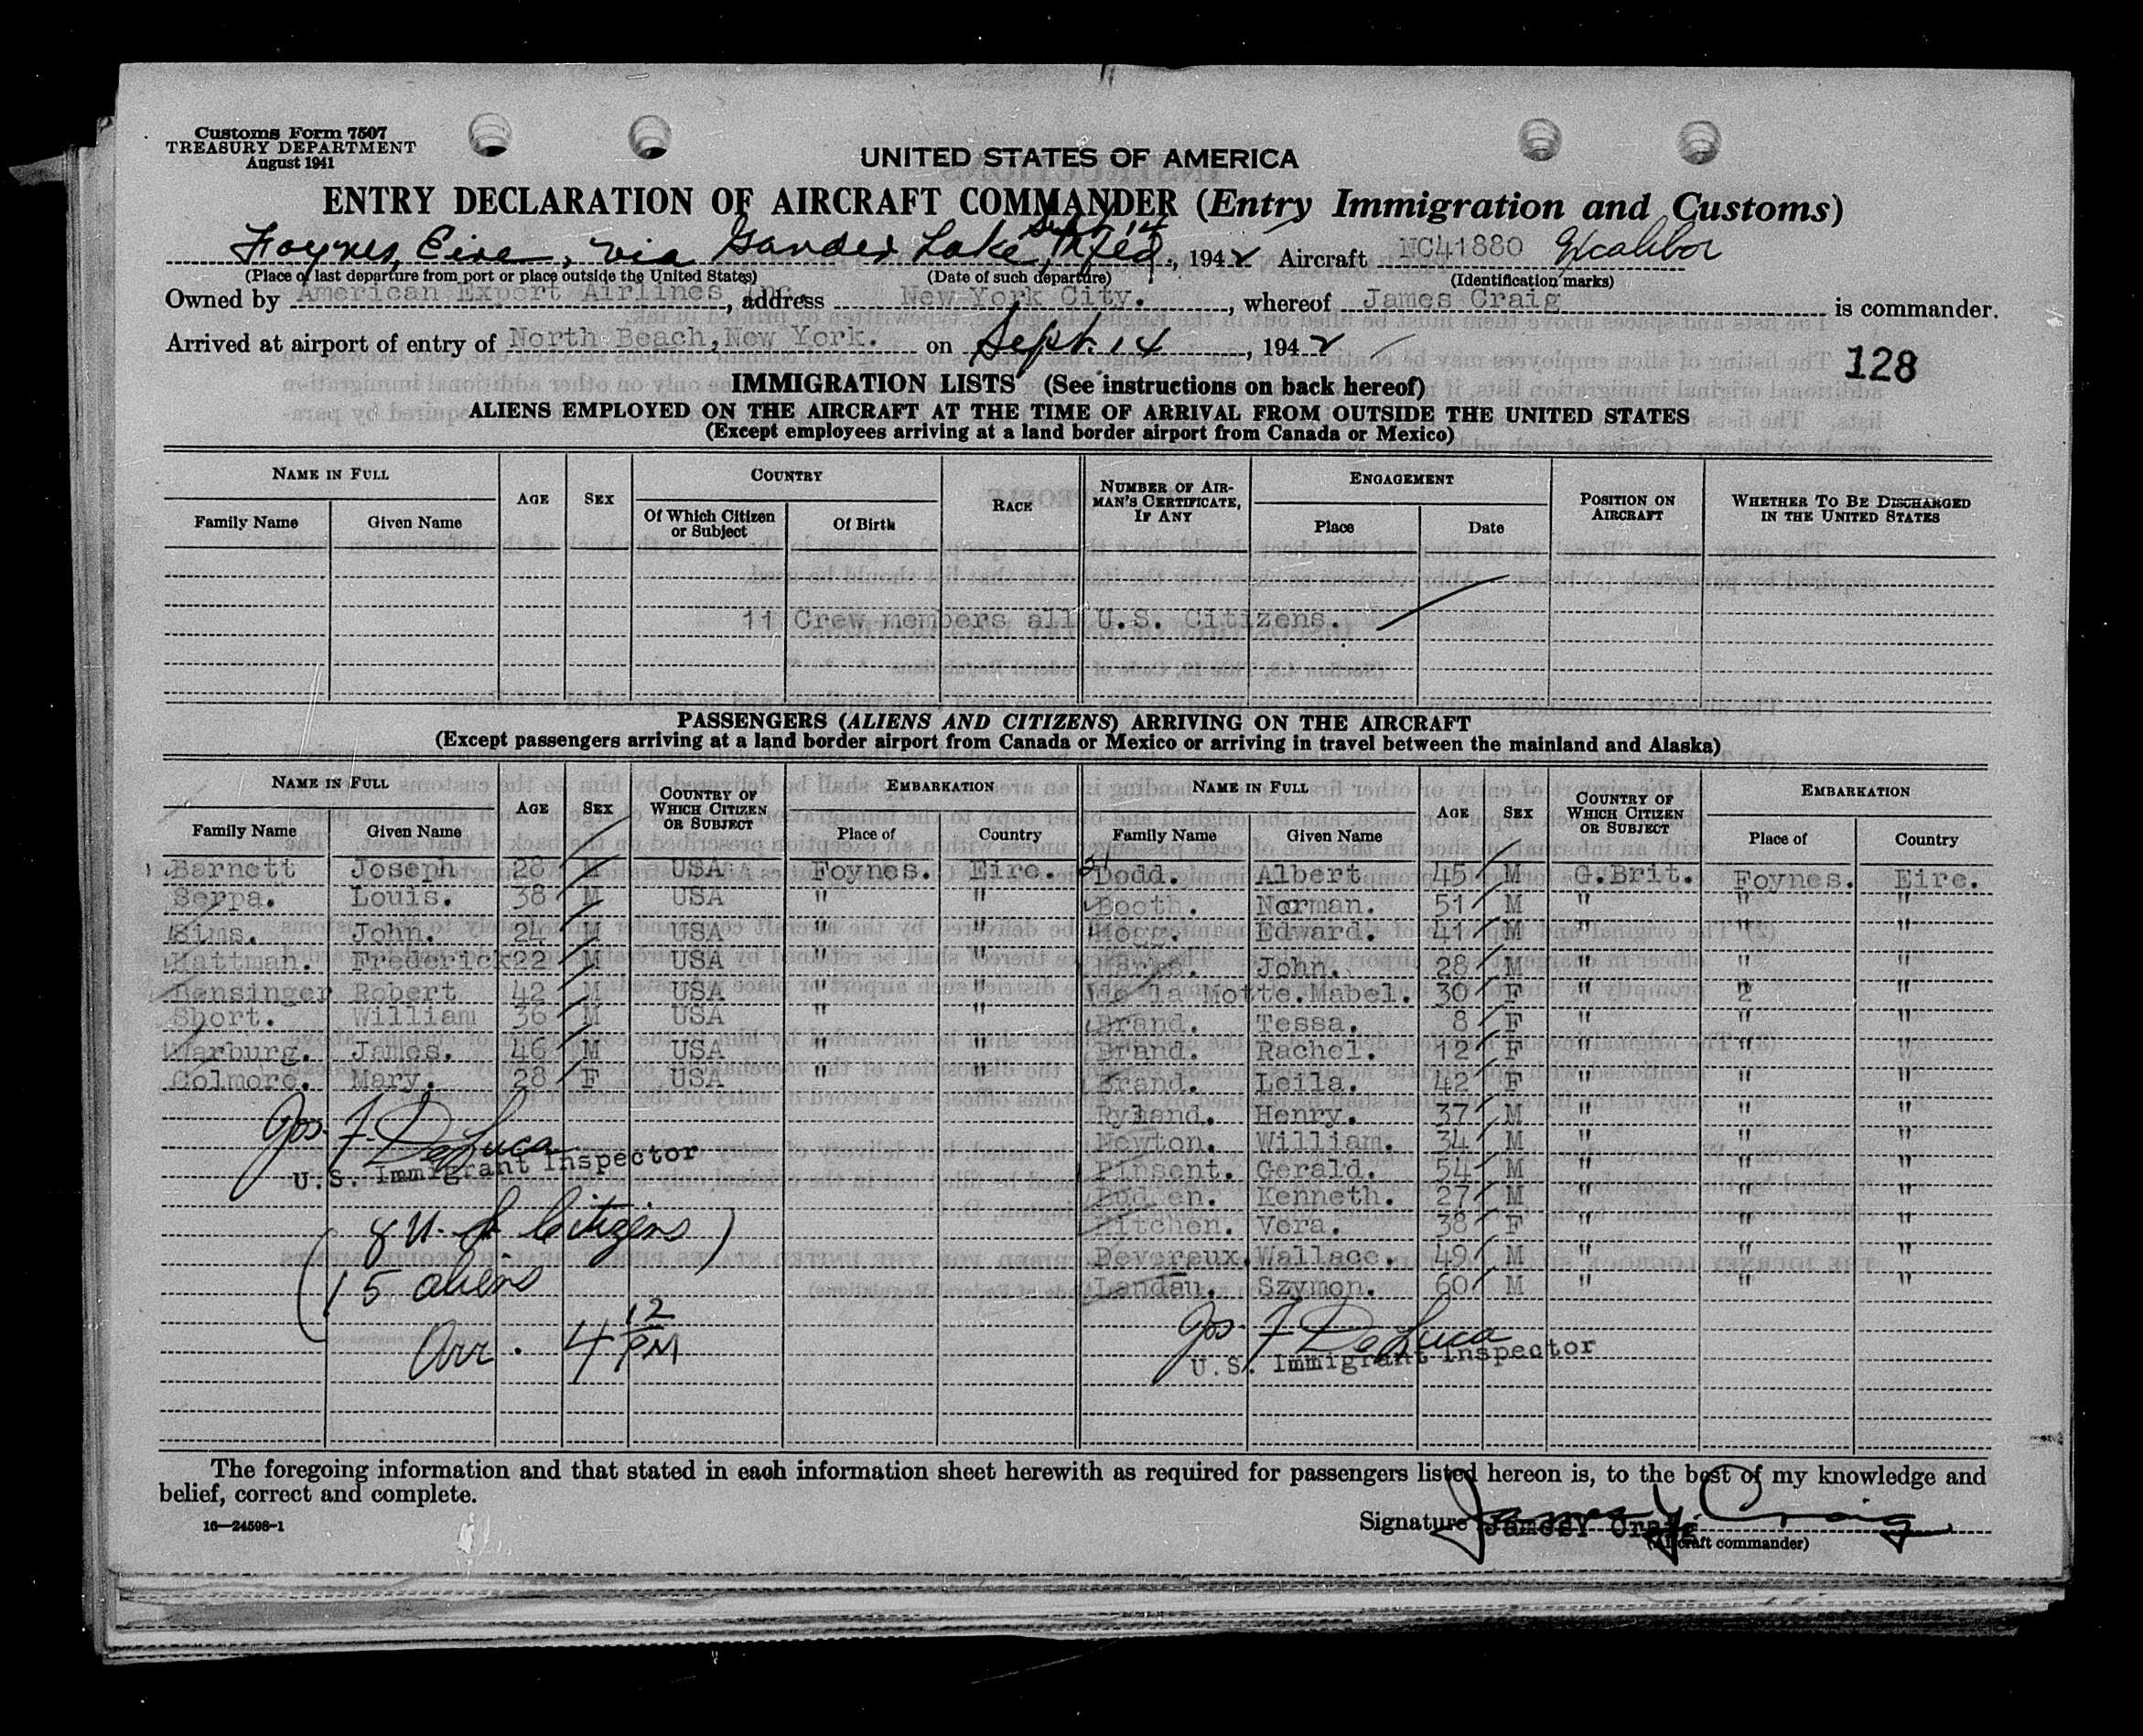 Customs Form 7507
TREASURY DEPARTMENT
August 1941
UNITED STATES OF AMERICA
ENTRY DECLARATION OF AIRCRAFT COMMANDER (Entry Immigration and Customs)
Foynes, Eire, via Gander Lake, Nfld Sept 14, 1942 Aircraft NC41880 Excalibor
(Place of last departure from port or place outside the United States) (Date of such departure) (Identification marks)
Owned by American Export Airlines Inc., address New York City., whereof James Craig is commander.
Arrived at airport of entry of North Beach, New York. on Sept. 14, 1942
128
IMMIGRATION LISTS (See instructions on back hereof)
ALIENS EMPLOYED ON THE AIRCRAFT AT THE TIME OF ARRIVAL FROM OUTSIDE THE UNITED STATES
(Except employees arriving at a land border airport from Canada or Mexico)
NAME IN FULL AGE SEX COUNTRY RACE NUMBER OF AIRMAN'S CERTIFICATE, IF ANY ENGAGEMENT POSITION ON AIRCRAFT WHETHER TO BE DISCHARGED IN THE UNITED STATES
Family Name Given Name Of Which Citizen or Subject Of Birth Place Date
11 Crew members all U.S. Citizens.
PASSENGERS (ALIENS AND CITIZENS) ARRIVING ON THE AIRCRAFT
(Except passengers arriving at a land border airport from Canada or Mexico or arriving in travel between the mainland and Alaska)
NAME IN FULL AGE SEX COUNTRY OF WHICH CITIZEN OR SUBJECT EMBARKATION NAME IN FULL AGE SEX COUNTRY OF WHICH CITIZEN OR SUBJECT EMBARKATION
Family Name Given Name Place of Country Family Name Given Name Place of Country
Barnett Joseph 28 M USA Foynes. Eire.
Serpa. Louis. 38 M USA " "
Sims. John. 24 M USA " "
Hattman. Frederick 22 M USA " "
Bensinger Robert 42 M USA " "
Short. William 36 M USA " "
Warburg. James. 46 M USA " "
Colmore. Mary. 28 F USA " "
Jos. F. DeLuca
U.S. Immigrant Inspector
(8 U.S. Citizens)
(15 aliens
Arr. 4 12 PM
Dodd. Albert 45 M G.Brit. Foynes. Eire.
Booth. Norman. 51 M " " "
Hogg. Edward. 41 M " " "
Marks. John. 28 M " " "
de la Motte. Mabel. 30 F " " "
Brand. Tessa. 8 F " " "
Brand. Rachel. 12 F " " "
Brand. Leila. 42 F " " "
Ryland. Henry. 37 M " " "
Newton. William. 34 M " " "
Pinsent. Gerald. 54 M " " "
Bodgen. Kenneth. 27 M " " "
Kitchen. Vera. 38 F " " "
Devereux. Wallace. 49 M " " "
Landau. Szymon. 60 M " " "
Jos. F. DeLuca
U.S. Immigrant Inspector
The foregoing information and that stated in each information sheet herewith as required for passengers listed hereon is, to the best of my knowledge and
belief, correct and complete.
16—24598-1
Signature James Y Craig
James Y Craig
(Aircraft commander)